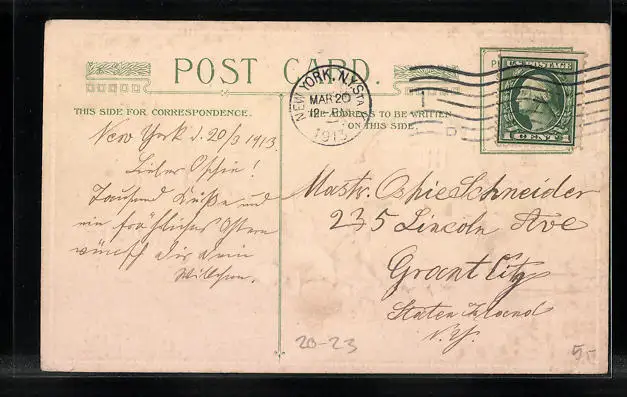 POST CARD.
THIS SIDE FOR CORRESPONDENCE.
THE ADDRESS TO BE WRITTEN
ON THIS SIDE.
NEW YORK, N.Y. STA
MAR 20
12-PM
1913
U.S. POSTAGE
1 CENT 1
New York d. 20/3 1913.
Lieber Oschie!
Tausend Küße und
ein fröhliches Ostern
wünscht dir dein
Willchen.
Mastr. Oshie Schneider
235 Lincoln Ave
Grant City
Staten Island
N.Y.
20-23
5-